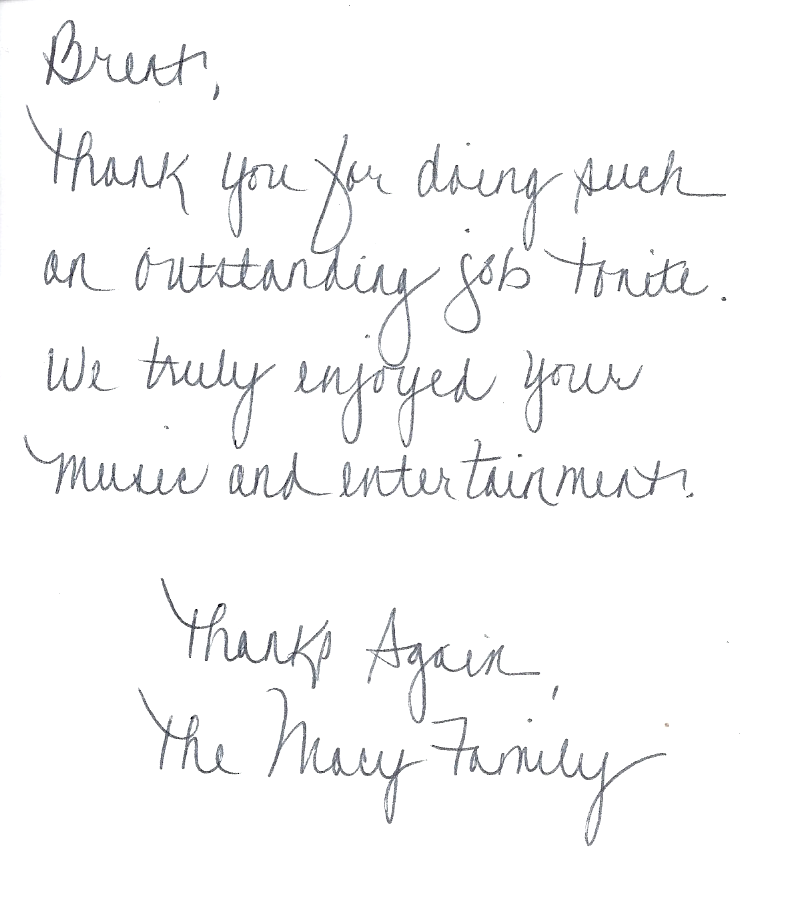 Brent,
Thank you for doing such
an outstanding job tonite.
We truly enjoyed your
music and entertainment.
Thanks Again,
The Macy Family